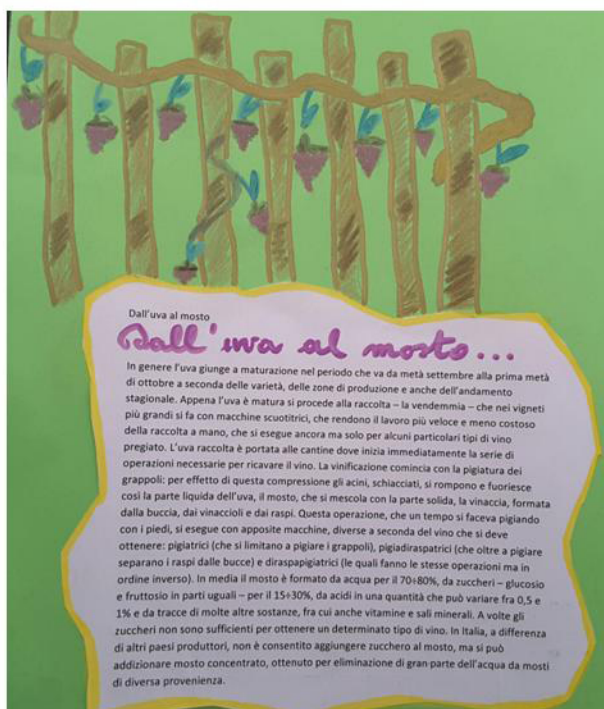 Dall'uva al mosto
Dall'uva al mosto...
In genere l'uva giunge a maturazione nel periodo che va da metà settembre alla prima metà
di ottobre a seconda delle varietà, delle zone di produzione e anche dell'andamento
stagionale. Appena l'uva è matura si procede alla raccolta – la vendemmia – che nei vigneti
più grandi si fa con macchine scuotitrici, che rendono il lavoro più veloce e meno costoso
della raccolta a mano, che si esegue ancora ma solo per alcuni particolari tipi di vino
pregiato. L'uva raccolta è portata alle cantine dove inizia immediatamente la serie di
operazioni necessarie per ricavare il vino. La vinificazione comincia con la pigiatura dei
grappoli: per effetto di questa compressione gli acini, schiacciati, si rompono e fuoriesce
così la parte liquida dell'uva, il mosto, che si mescola con la parte solida, la vinaccia, formata
dalla buccia, dai vinaccioli e dai raspi. Questa operazione, che un tempo si faceva pigiando
con i piedi, si esegue con apposite macchine, diverse a seconda del vino che si deve
ottenere: pigiatrici (che si limitano a pigiare i grappoli), pigiadiraspatrici (che oltre a pigiare
separano i raspi dalle bucce) e diraspapigiatrici (le quali fanno le stesse operazioni ma in
ordine inverso). In media il mosto è formato da acqua per il 70÷80%, da zuccheri – glucosio
e fruttosio in parti uguali – per il 15÷30%, da acidi in una quantità che può variare fra 0,5 e
1% e da tracce di molte altre sostanze, fra cui anche vitamine e sali minerali. A volte gli
zuccheri non sono sufficienti per ottenere un determinato tipo di vino. In Italia, a differenza
di altri paesi produttori, non è consentito aggiungere zucchero al mosto, ma si può
addizionare mosto concentrato, ottenuto per eliminazione di gran parte dell'acqua da mosti
di diversa provenienza.